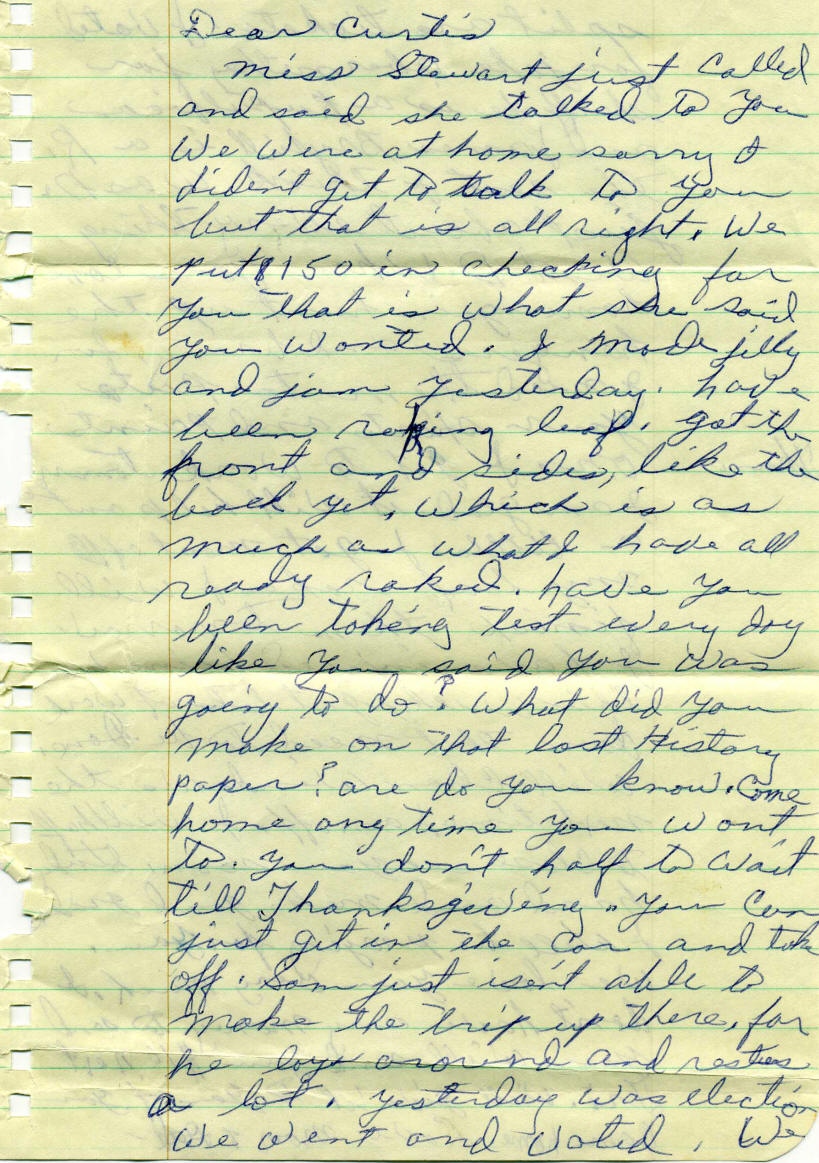 Dear Curtis
Miss Stewart just called
and said she talked to you
We were at home sorry I
diden't get to talk to you
but that is all right. We
put $150 in checking for
you that is what she said
you wanted. I made jelly
and jam yesterday. have
been raking leaf. got the
front and sides, like the
back yet, which is as
much as what I have all
ready raked. have you
been takeing test every day
like you said you was
going to do? What did you
make on that last History
paper? are do you know. Come
home any time you want
to. you don't half to wait
till Thanksgiveing. You can
just get in the car and take
off. Sam just isen't able to
make the trip up there, for
he lays around and resties
a lot. yesterday was election
we went and voted. We